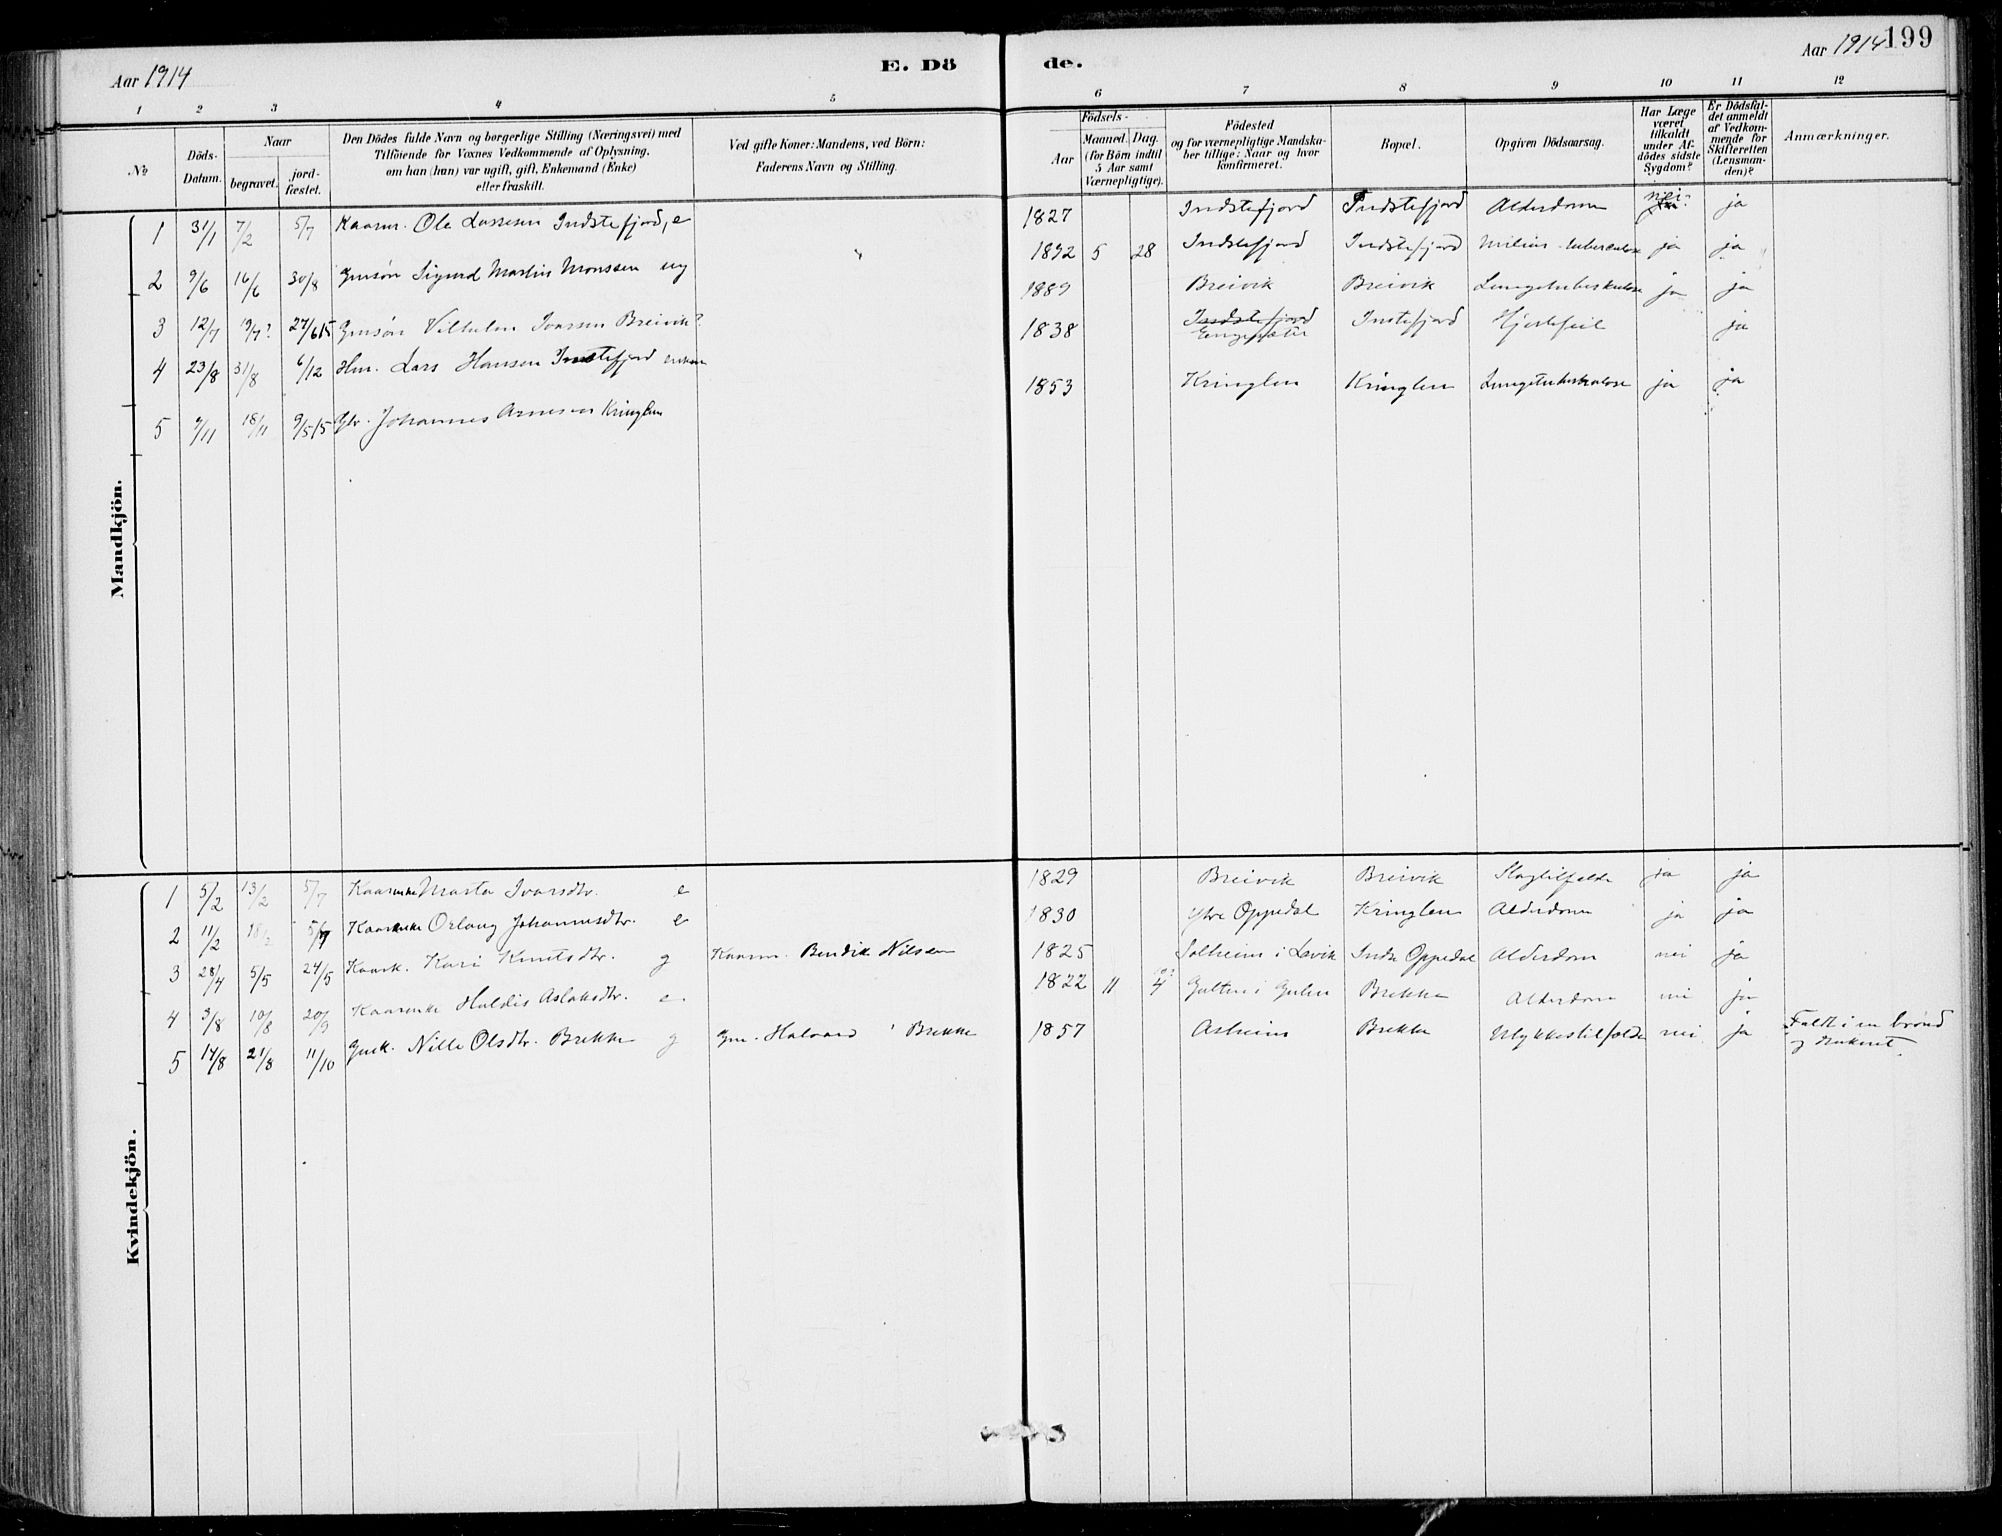 Aar 1914
E. Dö
de.
Aar 1914
199
1 2 3 4 5 6 7 8 9 10 11 12
No
Döds-Datum.
Naar
begravet.
jord-fæstet.
Den Dödes fulde Navn og borgerlige Stilling (Næringsvei) med
Tilföiende for Voxnes Vedkommende af Oplysning,
om han (hun) var ugift, gift, Enkemand (Enke)
eller fraskilt.
Ved gifte Koner: Mandens, ved Börn:
Faderens Navn og Stilling.
Födsels-
Aar
Maaned. Dag.
(for Börn indtil
5 Aar samt
Værnepligtige).
Födested
og for værnepligtige Mandska-
ber tillige: Naar og hvor
konfirmeret.
Bopæl.
Opgiven Dödsaarsag.
Har Læge
været
tilkaldt
under Af-
dödes sidste
Sygdom?
Er Dödsfal-
det anmeldt
af Vedkom-
mende for
Skifteretten
(Lensman-
den)?
Anmærkninger.
Mandkjön.
1 31/1 7/2 5/7 Kaarm. Ole Lassesen Indstefjord, e 1827 Indstefjord Indstefjord Alderdom nei? ja
2 9/6 16/6 30/8 Gmsøn Sigurd Martin Monssen ug 1892 5 28 Indstefjord Indstefjord tuberculose ja ja
3 12/7 19/7? 27/6 15 Gmsøn Vilhelm Ivarsen Breivik? 1889 Breivik Breivik Lungetuberkulose ja ja
4 23/8 31/8 6/12 Hm. Lars Hansen Instefjord enkem 1838 Indstefjord Instefjord Hjertefeil ja
5 9/11 18/11 9/5 15 Johannes Arnesen Kringlen 1853 Kringlen Kringlen Lungetuberkulose ja ja
Kvindekjön.
1 5/2 13/2 5/7 Kaarenke Marta Ivarsdtr. e 1829 Breivik Breivik Slagtilfelde ja ja
2 11/2 18/2 5/7 Kaarenke Orlaug Johannesdtr. e 1830 Ytre Oppedal Kringlen Alderdom ja ja
3 28/4 5/5 24/5 Kaark. Kari Knutsdtr. g Kaarm. Bendik Nilsen 1825 Solheim i Lavik Indre Oppedal Alderdom nei ja
4 3/8 10/8 20/9 Kaarenke Haldis Aslaksdtr. e 1822 11 4 i Gulen Brekke Alderdom nei ja
5 14/8 21/8 11/10 Gmk. Nille Olsdtr. Brekke g Gm. Halvard Brekke 1857 Asheim Brekke Ulykkestilfælde nei ja Faldt i en brønd
og druknet.